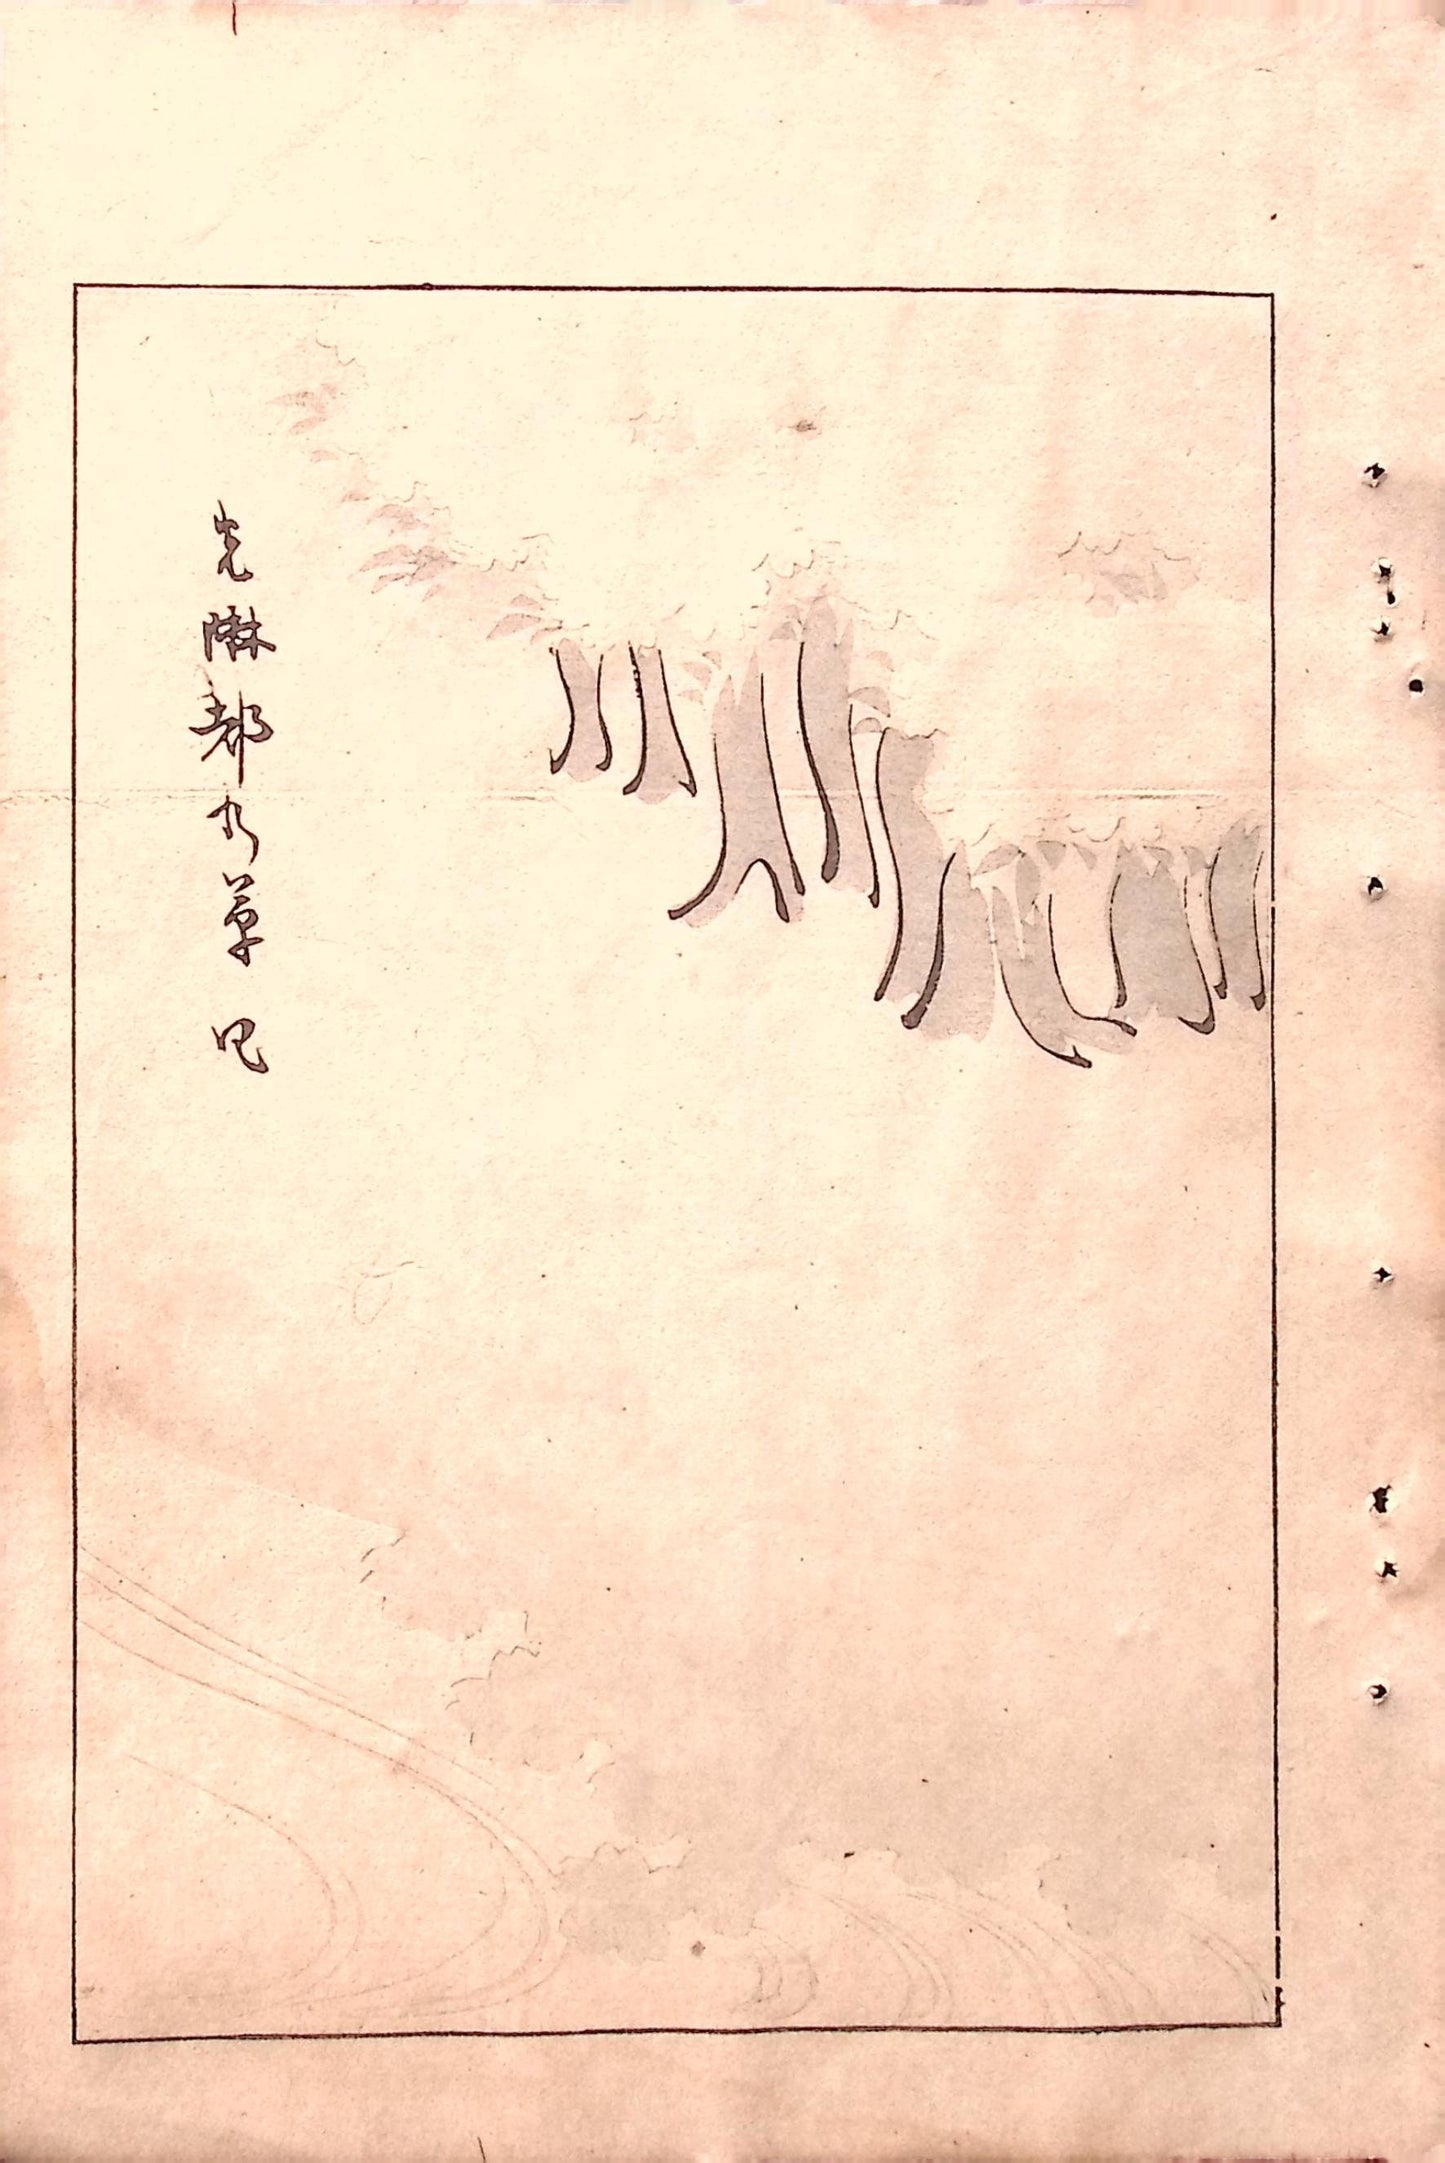 光琳都乃草